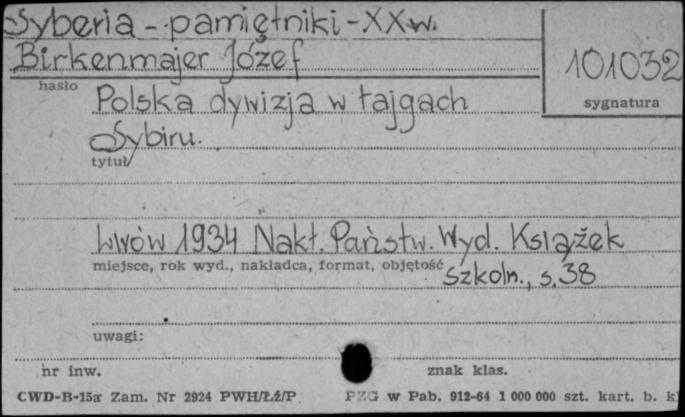 Syberia - pamiętniki - XX w.
Birkenmajer Józef
101032
hasło
sygnatura
Polska dywizja w tajgach
Sybiru.
tytuł
Lwów 1934 Nakł. Państw. Wyd. Książek
miejsce, rok wyd., nakładca, format, objętość
szkoln., s. 38
uwagi:
nr inw.
znak klas.
CWD-B-15a Zam. Nr 2924 PWH/Łź/P
PZG w Pab. 912-64 1 000 000 szt. kart. b. k